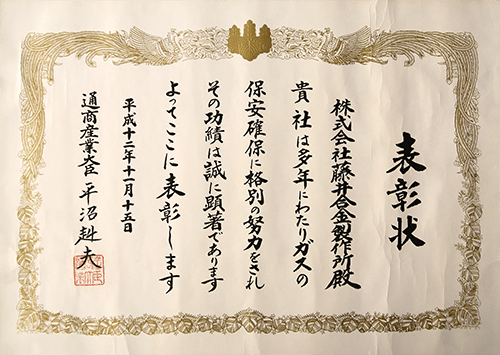 表彰状
株式会社藤井合金製作所殿
貴社は多年にわたりガスの
保安確保に格別の努力をされ
その功績は誠に顕著であります
よってここに表彰します
平成十二年十一月十五日
通商産業大臣 平沼赳夫